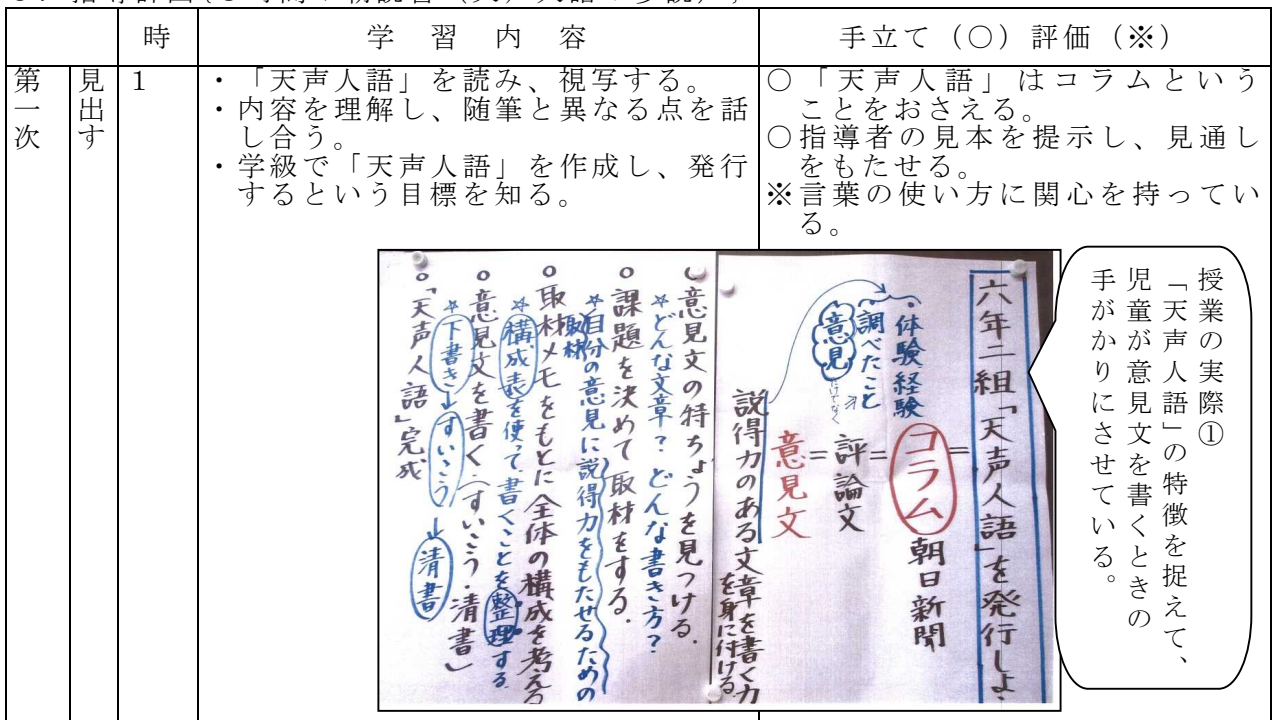 時
学習内容
手立て（○）評価（※）
第一次
見出す
1
・「天声人語」を読み、視写する。
・内容を理解し、随筆と異なる点を話
し合う。
・学級で「天声人語」を作成し、発行
するという目標を知る。
○「天声人語」はコラムという
ことをおさえる。
○指導者の見本を提示し、見通し
をもたせる。
※言葉の使い方に関心を持ってい
る。
授業の実際①
「天声人語」の特徴を捉えて、
児童が意見文を書くときの
手がかりにさせている。
六年二組「天声人語」を発行しよ
=コラム 朝日新聞
=評論文
=意見文
・体験経験
調べたこと
意見だけでなく
説得力のある文章を書く力
を身に付ける
意見文の特ちょうを見つける.
☆どんな文章？どんな書き方？
○課題を決めて取材をする.
☆自分の意見に説得力をもたせるための
取材
○取材メモをもとに全体の構成を考える
☆構成表を使って書くことを整理する
○意見文を書く(すいこう・清書)
☆下書き→すいこう→清書
○「天声人語」完成